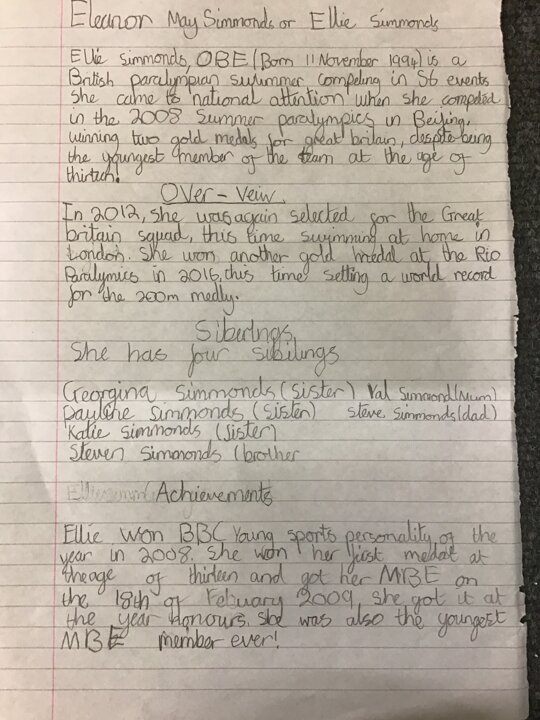 Eleanor May Simmonds or Ellie Simmonds
Ellie simmonds, OBE (Born 11 November 1994) is a
British paralympian swimmer competing in S6 events
She came to national attintion when she competed
in the 2008 Summer paralympics in Beijing,
winning two gold medals for great britain, despite being
the youngest member of the team at the age of
thirteen!
Over-veiw.
In 2012, she was again selected for the Great
britain squad, this time swimming at home in
London. She won another gold medal at the Rio
Paralymics in 2016, this time setting a world record
for the 200m medly.
Siberlngs
She has four sibilings
Georgina Simmonds (sister) Val Simmond (Mum)
Payline Simmonds (Sister) Steve. Simmonds (dad)
Katie Simmonds (Sister)
Steven Simmonds (brother
Achievements
Ellie won BBC Young sports personality of the
year in 2008. She won her first medal at
the age of thirteen and got her MBE on
the 18th of Febuary 2009. She got it at
the year Honours. She was also the youngest
MBE member ever!